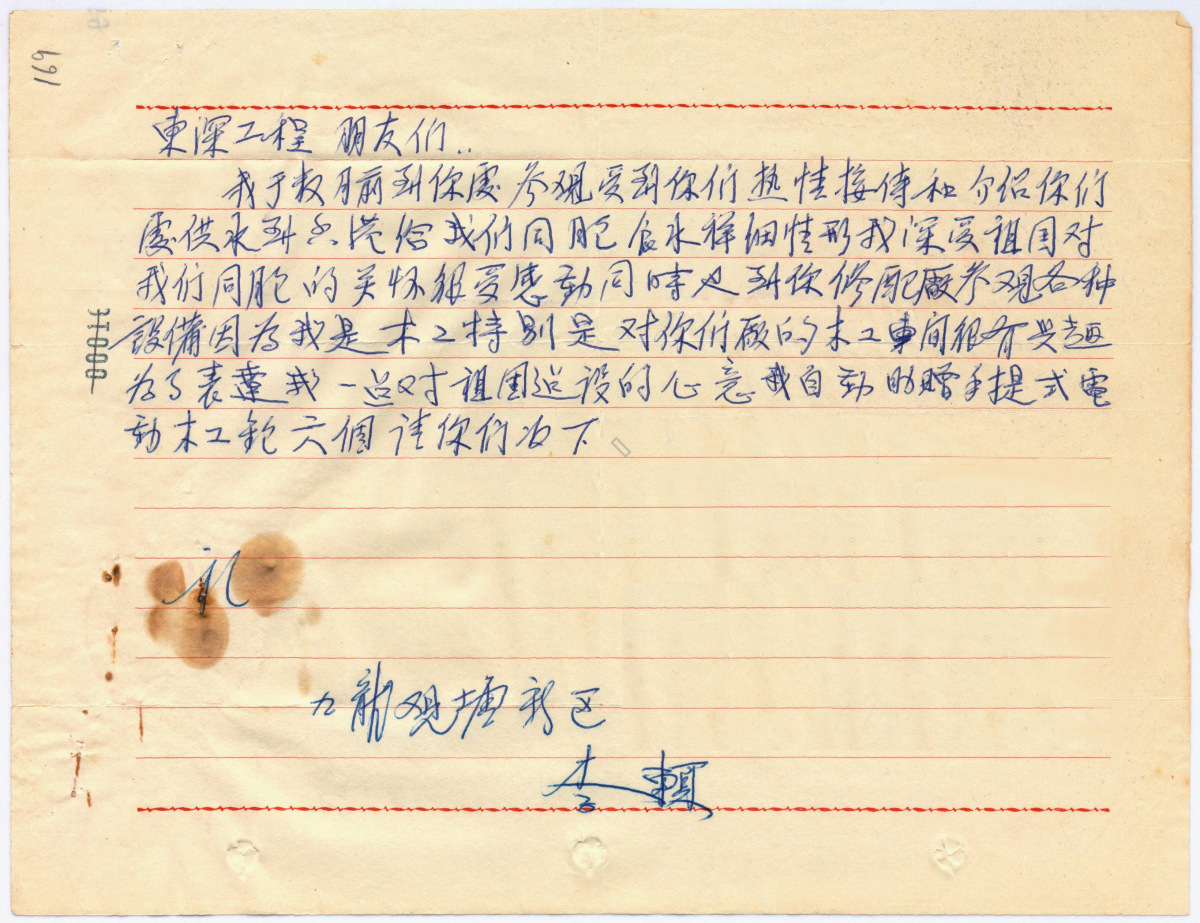 169
東深工程 朋友们:
我于数月前到你處参观受到你们热情接待和介绍你们
處供水到香港给我们同胞食水祥细情形我深受祖国对
我们同胞的关怀很受感動同時也到你修配廠参观各种
設備因為我是木工特别是对你们廠的木工車间很有兴趣
為了表達我一点对祖国建设的心意我自動助赠手提式電
動木工鉋六個请你们收下
礼
00017
九龍观塘新区
李輯